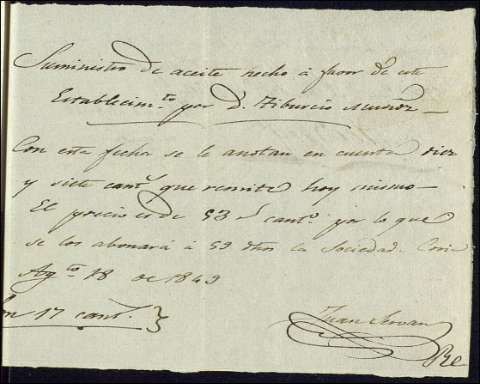 Suministro de aceite hecho á favor de este
Establecim.to por D. Tiburcio Muñoz
Con esta fecha se le anotan en cuenta diez
y siete cant.s que remite hoy mismo
El precio es de 53 cant.o por lo que
se los abonará á 59 la Sociedad.
Ag.to 18 de 1849
17 cant.s
Juan